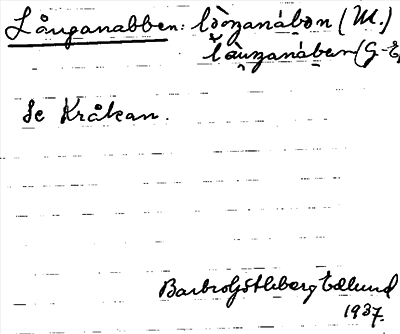 Långanabben: lòŋanábən (M.)
làuŋanáben (G-E
Se Kråkan.
Barbro Göthberg Edlund
1937.